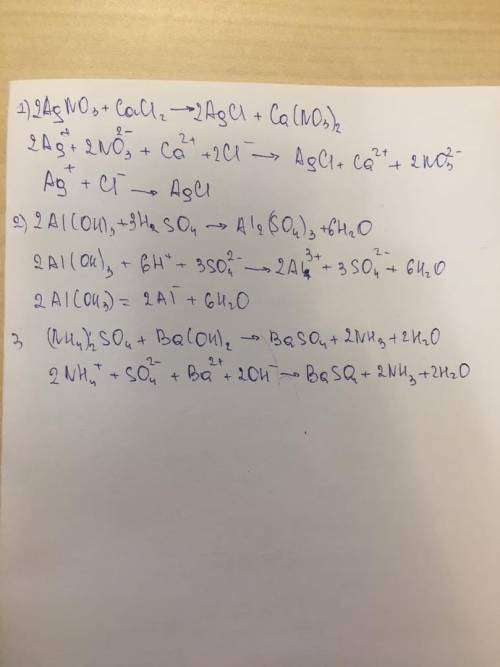 1) 2AgNO₃ + CaCl₂ → 2AgCl + Ca(NO₃)₂
2Ag⁺ + 2NO₃²⁻ + Ca²⁺ + 2Cl⁻ → AgCl + Ca²⁺ + 2NO₃²⁻
Ag⁺ + Cl⁻ → AgCl
2) 2Al(OH)₃ + 3H₂SO₄ → Al₂(SO₄)₃ + 6H₂O
2Al(OH)₃ + 6H⁺ + 3SO₄²⁻ → 2Al³⁺ + 3SO₄²⁻ + 6H₂O
2Al(OH₃) = 2Al⁻ + 6H₂O
3, (NH₄)₂SO₄ + Ba(OH)₂ → BaSO₄ + 2NH₃ + 2H₂O
2NH₄⁺ + SO₄²⁻ + Ba²⁺ + 2OH⁻ → BaSO₄ + 2NH₃ + 2H₂O